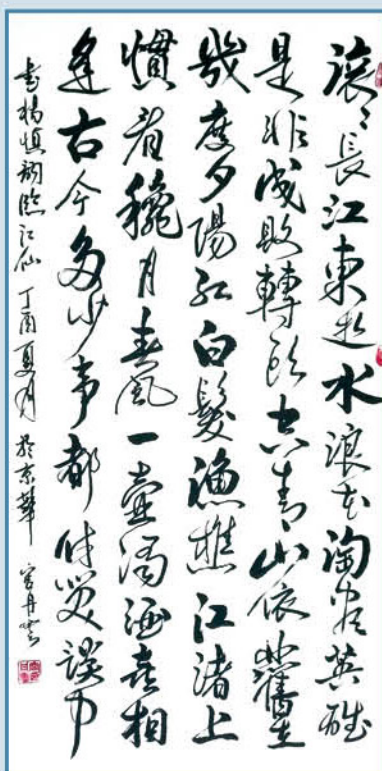 滚〻長江東逝水浪花淘盡英雄
是非成敗轉頭空青山依舊在
幾度夕陽紅白髮漁樵江渚上
慣看秋月春風一壺濁酒喜相
逢古今多少事都付笑談中
書楊慎詞臨江仙丁酉夏月於京華